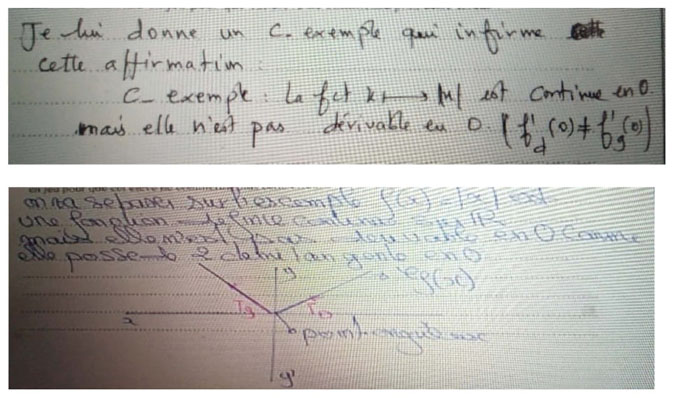 Je lui donne un C. exemple qui infirme cette
cette affirmation :
C_ exemple : La fct x ⟼ |x| est continue en 0
mais elle n'est pas dérivable en 0. (f'd (0) ≠ f'g (0))
on va se baser sur l'exemple f(x) = |x| est
une fonction définie continue sur IR
mais elle n'est pas dérivable en 0 comme
elle possède 2 demi tangente en 0
y
Cf(x)
Tg
TD
x
point anguleux
y'